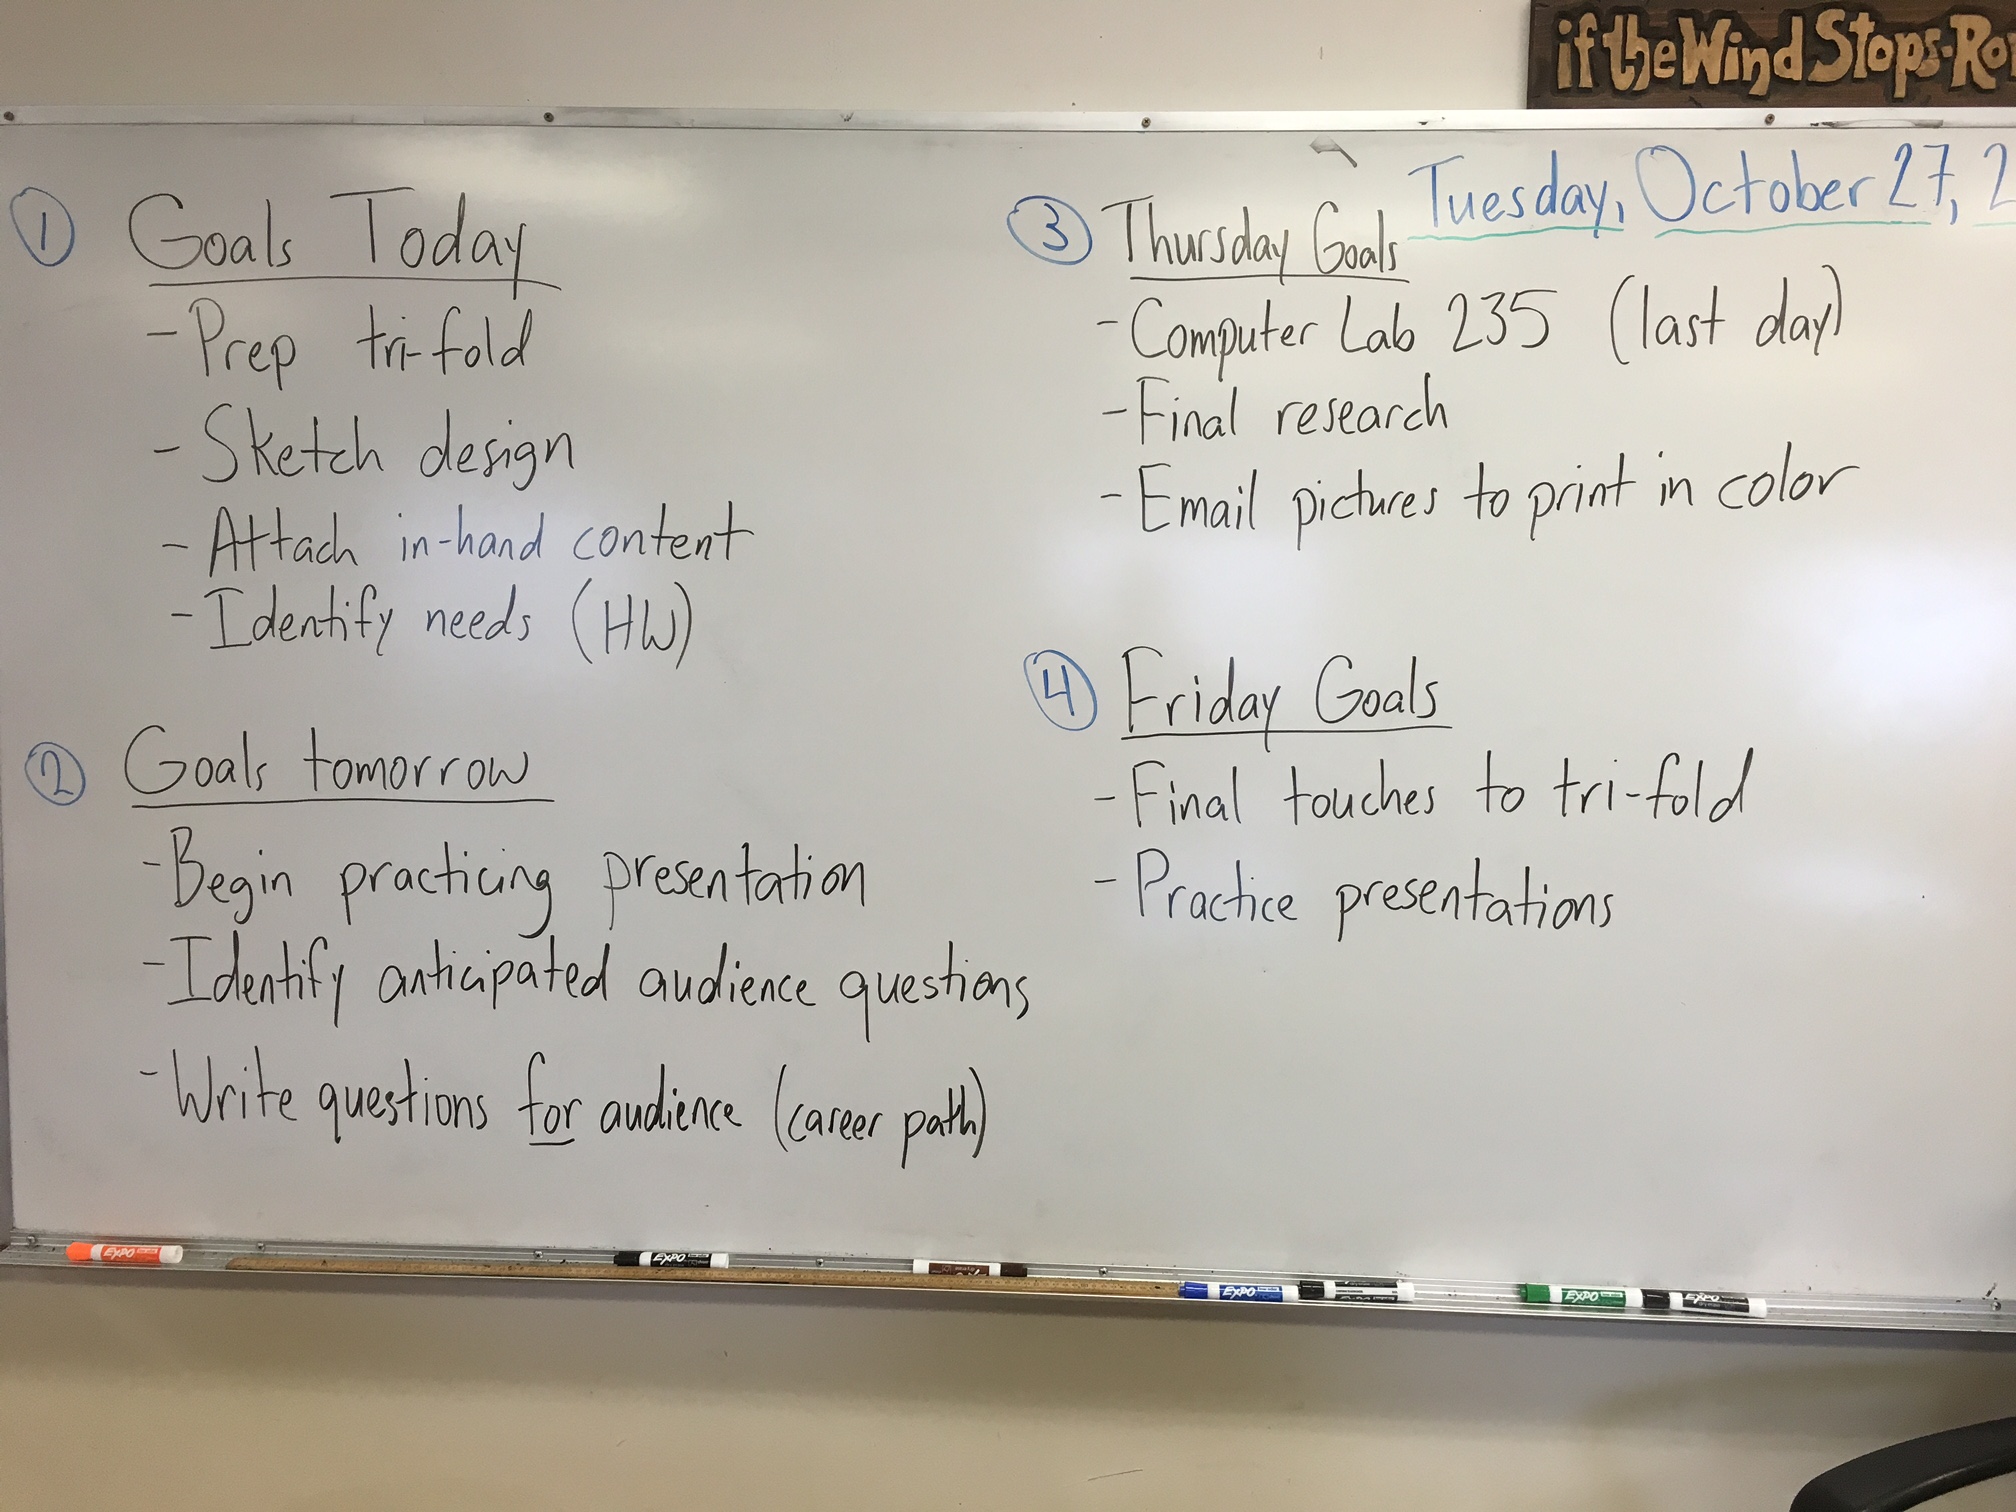 if the Wind Stops-Ro
Tuesday, October 27, 2
1 Goals Today
- Prep tri-fold
- Sketch design
- Attach in-hand content
- Identify needs (HW)
2 Goals tomorrow
- Begin practicing presentation
- Identify anticipated audience questions
- Write questions for audience (career path)
3 Thursday Goals
- Computer Lab 235 (last day)
- Final research
- Email pictures to print in color
4 Friday Goals
- Final touches to tri-fold
- Practice presentations
EXPO
EXPO
EXPO
EXPO
EXPO